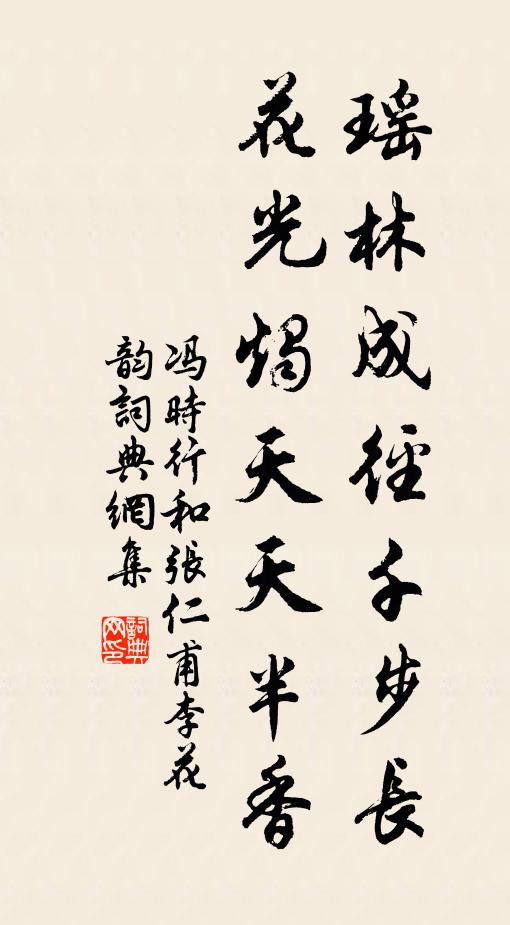 瑶林成徑千步長
花光燭天天半香
冯時行和張仁甫李花
韵詞典網集
詞典网印